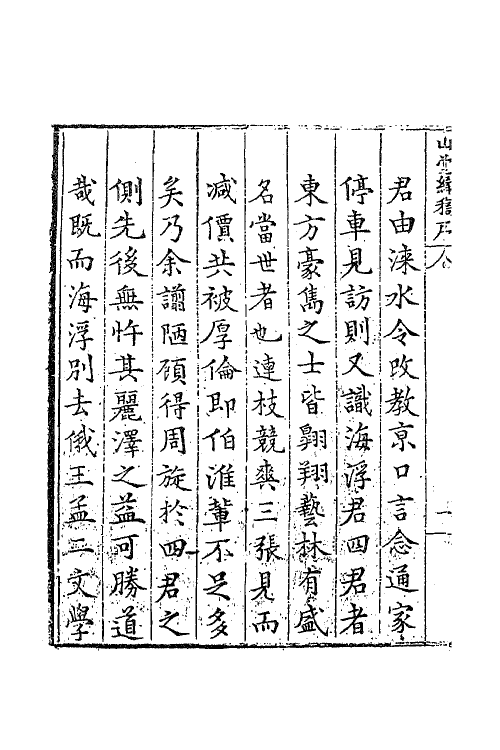 山堂緝稿序
君由淶水令改教京口言念通家
停車見訪則又識海浮君四君者
東方豪雋之士皆翱翔藝林有盛
名當世者也連枝競爽三張見而
减價共被厚倫即伯淮輩不足多
矣乃余謭陋頋得周旋於四君之
側先後無忤其麗澤之益可勝道
哉既而海浮別去俄王孟二文學